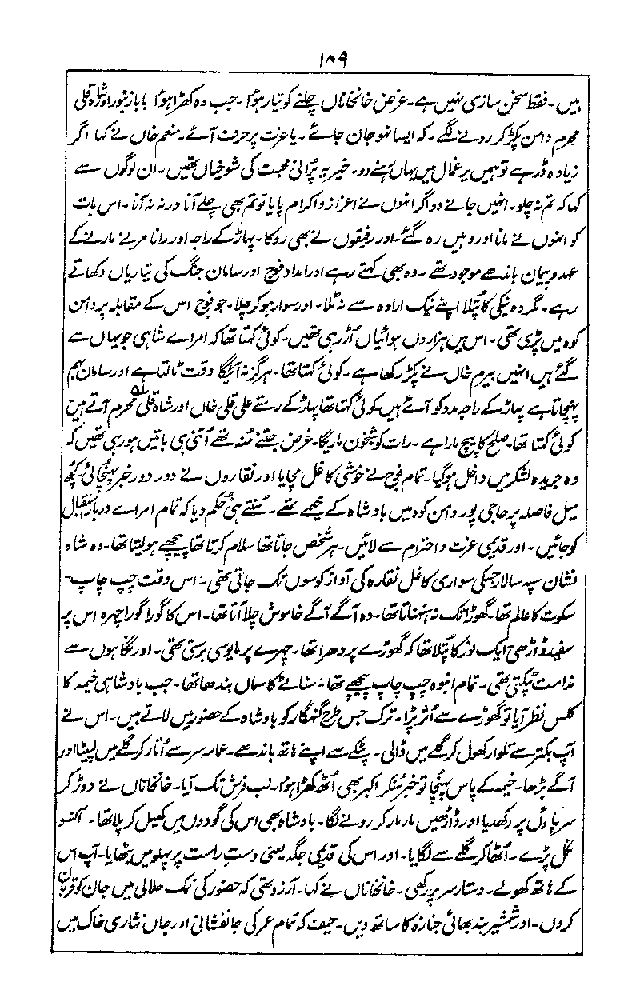 ۱۸۹
ہیں۔ فقط سخن سازی نہیں ہے۔ غرض خانخاناں چلنے کو تیار ہوا۔ جب وہ کھڑا ہوا بابا زنبور اور شاہ قلی
محرم دامن پکڑ کر رونے لگے۔ کہ ایسا نہ ہو جان جائے۔ یا عزت پر حرف آئے۔ منعم خاں نے کہا اگر
زیادہ ڈر ہے تو ہمیں یرغمال میں یہاں رہنے دو۔ خیر یہ پرانی محبت کی شوخیاں تھیں۔ ان لوگوں سے
کہا کہ تم نہ چلو۔ انہیں جانے دو اگر انہوں نے اعزاز و اکرام پایا تو تم بھی چلے آنا ورنہ نہ آنا۔ اس بات
کو انہوں نے مانا اور وہیں رہ گئے۔ اور رفیقوں نے بھی روکا۔ پہاڑ کے راجہ اور رانا مرنے مارنے کے
عہد و پیمان باندھے موجود تھے۔ وہ بھی کہتے رہے اور امداد فوج اور سامان جنگ کی تیاریاں دکھاتے
رہے۔ مگر وہ نیکی کا پتلا اپنے نیک ارادہ سے نہ ٹلا۔ اور سوار ہو کر چلا۔ جو فوج اس کے مقابلہ پر دامن
کوہ میں پڑی تھی۔ اس میں ہزاروں ہوائیاں اڑ رہی تھیں۔ کوئی کہتا تھا کہ امراے شاہی جو یہاں سے
گئے ہیں انہیں بیرم خاں نے پکڑ رکھا ہے۔ کوئی کہتا تھا۔ ہرگز نہ آئیگا وقت ٹالتا ہے اور سامان بہم
پہنچاتا ہے پہاڑ کے راجہ مدد کو آئے ہیں کوئی کہتا تھا پہاڑ کے رستے علی قلی خاں اور شاہ قلی محرم آتے ہیں
کوئی کہتا تھا۔ صلح کا پیچ مارا ہے۔ رات کو شبخون ماریگا۔ غرض جتنے منہ تھے اتنی ہی باتیں ہو رہی تھیں کہ
وہ جریدہ لشکر میں داخل ہو گیا۔ تمام فوج نے خوشی کا غل مچایا اور نقاروں نے دور دور خبر پہنچائی کچھ
میل فاصلہ پر حاجی پور دامن کوہ میں بادشاہ کے خیمے تھے۔ سنتے ہی حکم دیا کہ تمام امراے دربار استقبال
کو جائیں۔ اور قدیمی عزت و احترام سے لائیں۔ ہر شخص جاتا تھا سلام کرتا تھا پیچھے ہو لیتا تھا۔ وہ شاہ
نشان سپہ سالار جسکی سواری کا غل نقارہ کی آواز کوسوں تک جاتی تھی۔ اس وقت چپ چاپ۔
سکوت کا عالم تھا۔ گھوڑا تک نہ ہنہناتا تھا۔ وہ آگے آگے خاموش چلا آتا تھا۔ اس کا گورا گورا چہرہ اس پر
سفید ڈاڑھی ایک نور کا پتلا تھا کہ گھوڑے پر دھرا تھا۔ چہرے پر مایوسی برستی تھی۔ اور نگاہوں سے
ندامت ٹپکتی تھی۔ تمام انبوہ چپ چاپ پیچھے تھا۔ سناٹے کا سماں بندھا تھا۔ جب بادشاہی خیمہ کا
کلس نظر آیا تو گھوڑے سے اتر پڑا۔ ترک جس طرح گنہگار کو بادشاہ کے حضور میں لاتے ہیں۔ اس نے
آپ بکتر سے تلوار کھول کر گلے میں ڈالی۔ پٹکے سے اپنے ہاتھ باندھے۔ عمامہ سر سے اتار کر گلے میں لپیٹا اور
آگے بڑھا۔ خیمہ کے پاس پہنچا تو خبر سنکر اکبر بھی اٹھ کھڑا ہوا۔ لب فرش تک آیا۔ خانخاناں نے دوڑ کر
سر پاؤں پر رکھدیا اور ڈاڑھیں مار مار کر رونے لگا۔ بادشاہ بھی اس کی گودوں میں کھیل کر پلا تھا۔ آنسو
نکل پڑے۔ اٹھا کر گلے سے لگایا۔ اور اس کی قدیمی جگہ یعنی دست راست پر پہلو میں بٹھایا۔ آپ اس
کے ہاتھ کھولے۔ دستار سر پر رکھی۔ خانخاناں نے کہا۔ آرزو تھی کہ حضور کی نمک حلالی میں جان کو قربان
کروں۔ اور شمشیر بند بھائی جنازہ کا ساتھ دیں۔ حیف کہ تمام عمر کی جانفشانی اور جاں نثاری خاک میں